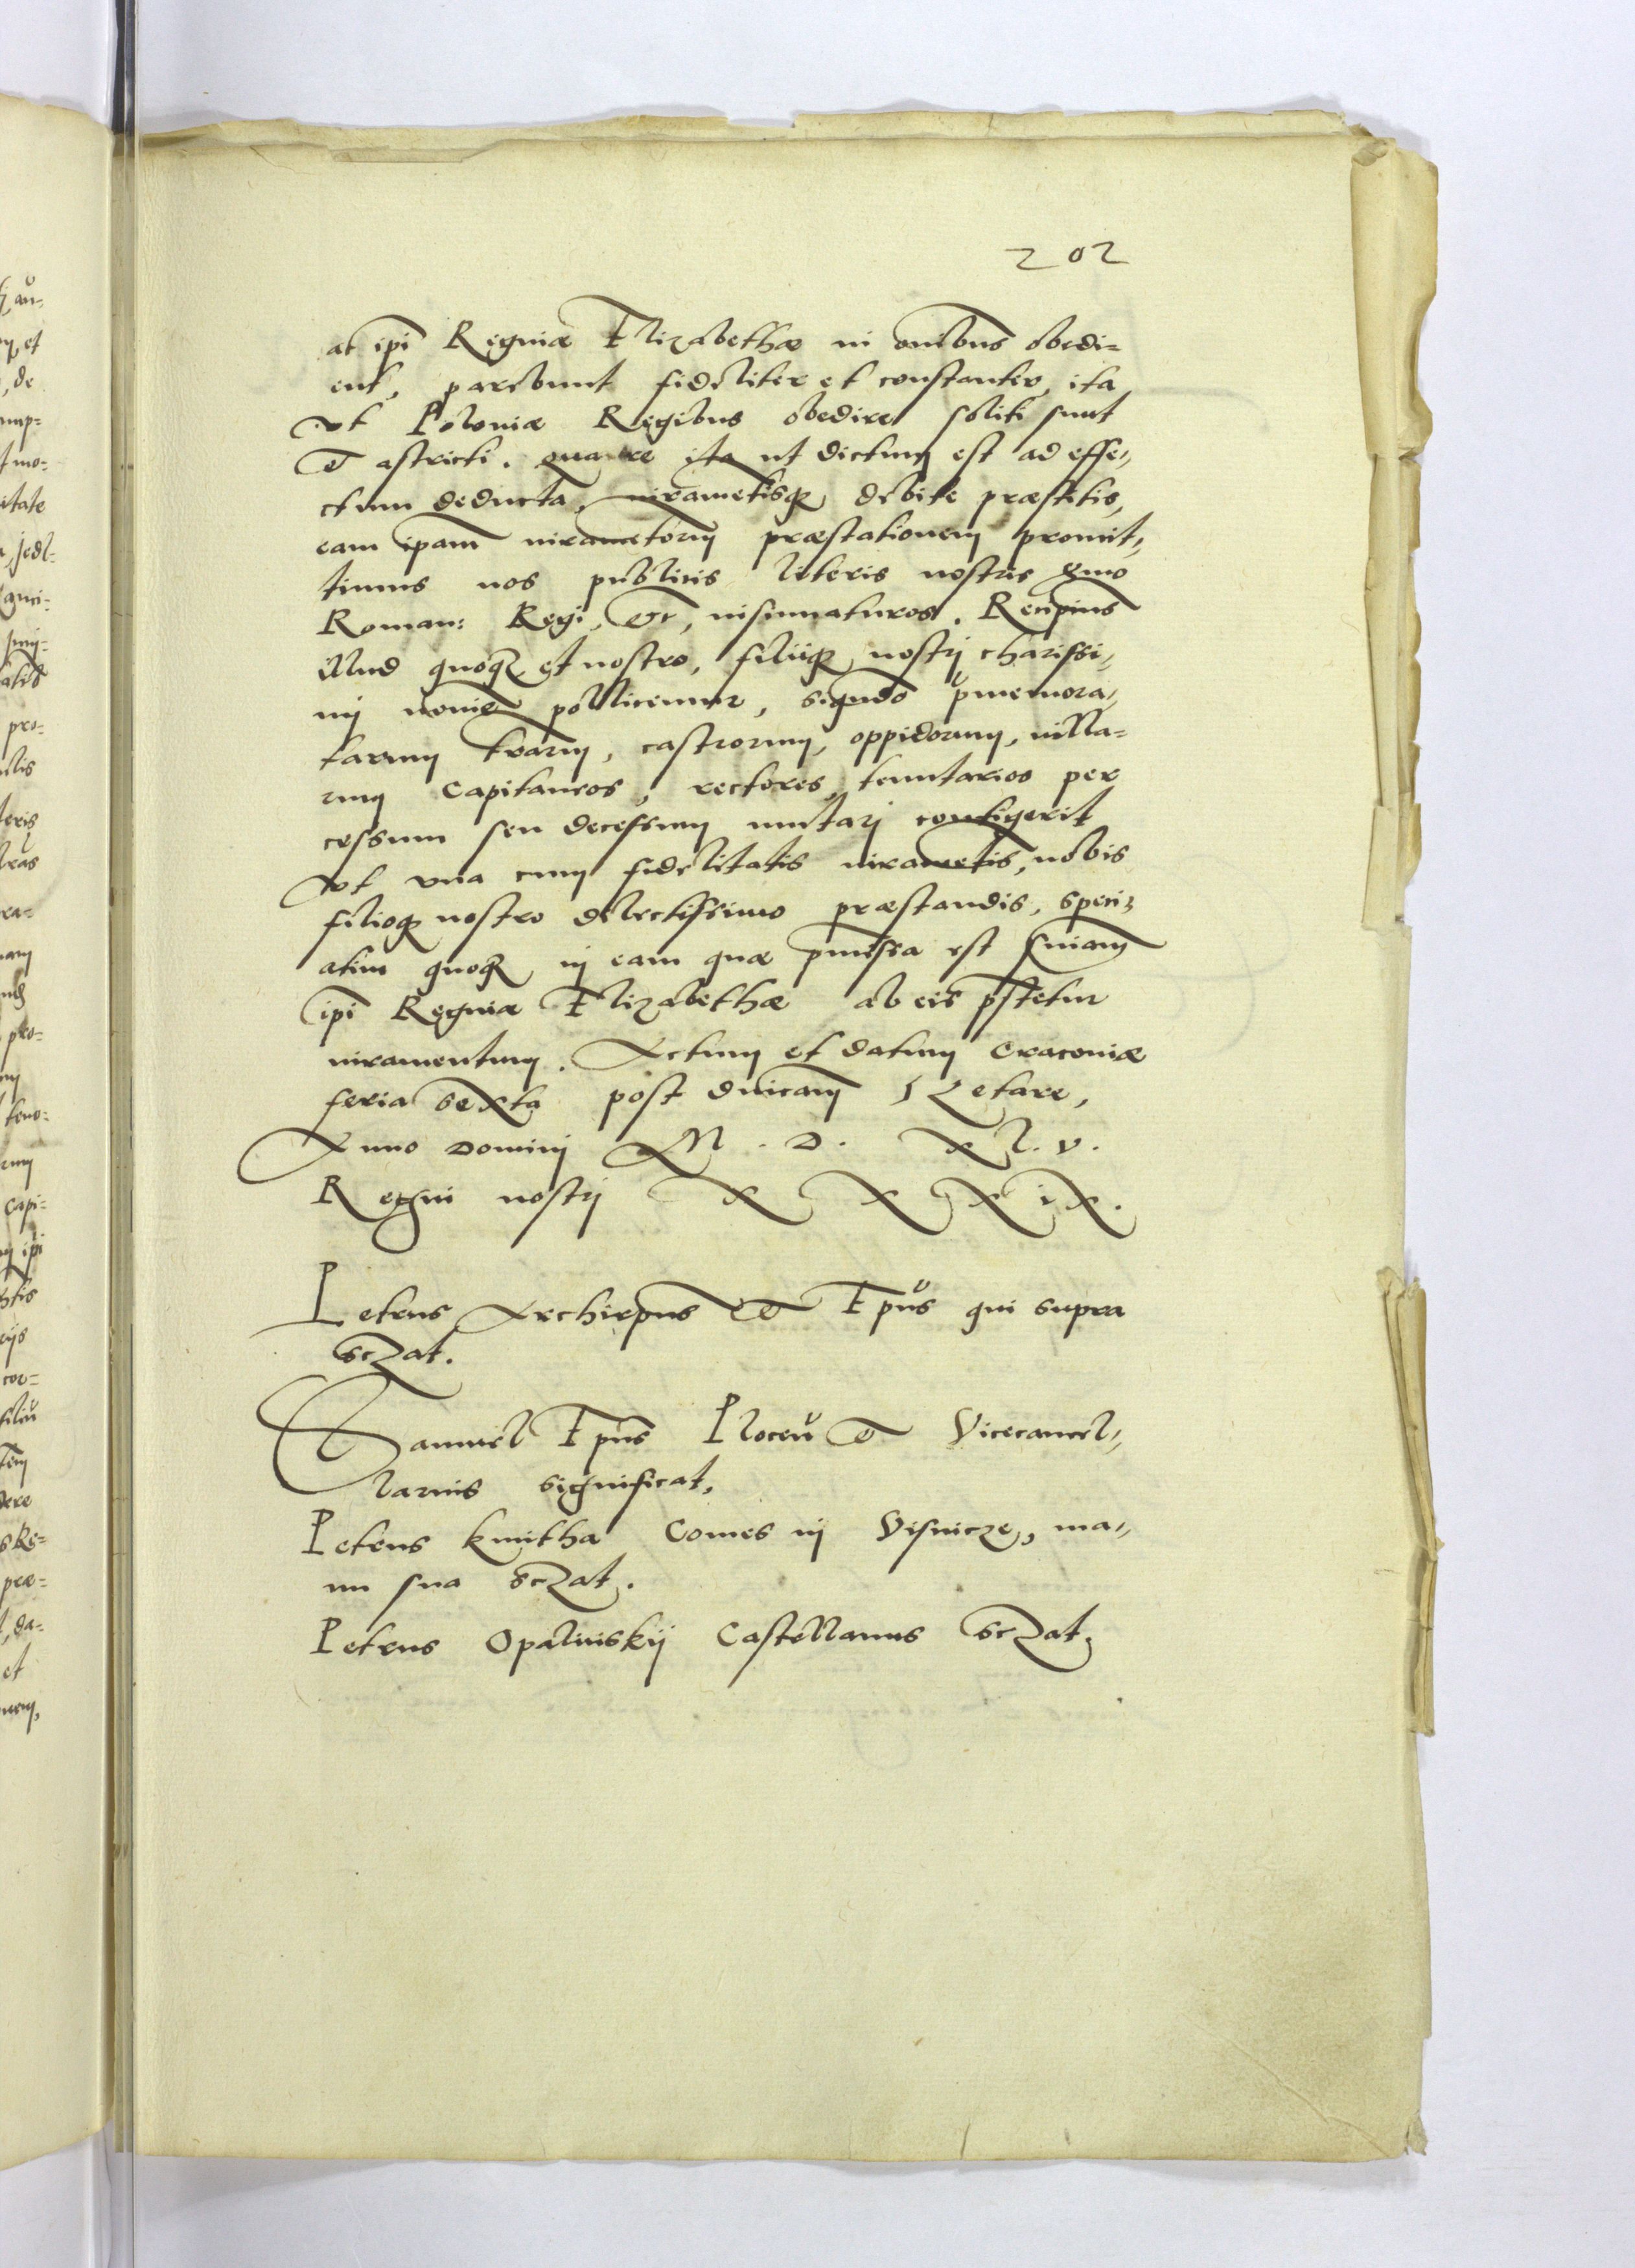 202
at ip̄i Reginæ Elizabethæ in om̄ibus obedi=
ent, parebunt fideliter et constanter, ita
ut Poloniæ Regibus obedire soliti sunt
& astricti. Quare ita ut dictum est ad effe=
ctum deducta, iurametisq; debite præstitis,
eam ip̄am iurametorum præstationem promit=
timus nos publicis literis nostris
Roman: Regi, &c, insinuaturos. Recip̄imus
illud quoq; et nostro, filiiq; nostri charissi=
mi no͞ie pollicemur, siqn̄do p̄memora=
tarum trarum, castrorum, oppidorum, villa=
rum Capitaneos, rectores, tenutarios per
cessum seu decessum mutari contigerit
ut una cum fidelitatis iurametis, nobis
filioq; nostro dilectissimo præstandis, speci=
atim quoq; in eam quæ p̄missa est sn̄iam
ip̄i Reginæ Elizabethæ ab eis p̄stetur
iuramentum. Actum et datum Cracoviæ
feria sexta post dn̄icam Lætare,
Anno Domini M. D. XL. v.
Regni nostri XXXiX.
Petrus Archiep̄us & Ep̄us qui supra
sc̄zat.
Samuel Ep̄us Plocen̄ & Vicecancel=
larius significat,
Petrus Kmitha Comes in Visnicze, ma=
nu sua sc̄zat.
Petrus Opalinskij Castellanus sc̄zat.